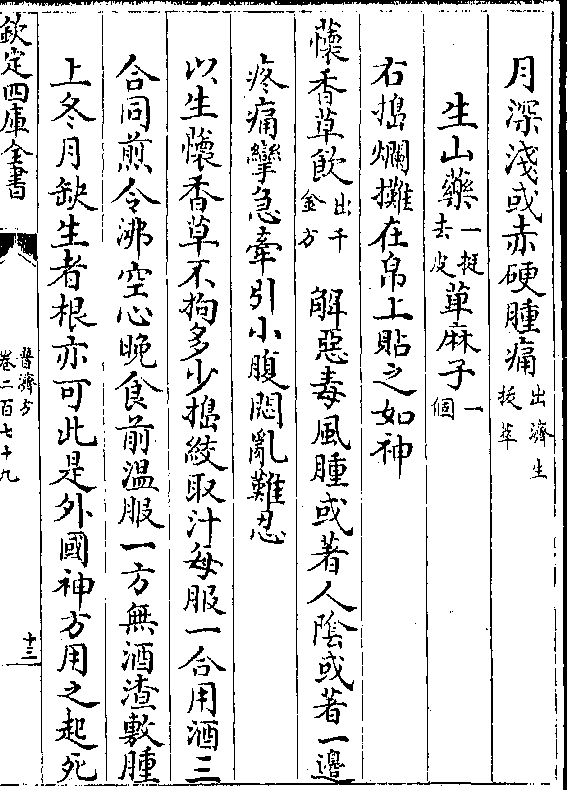 月深淺或赤硬腫痛出濟生拔萃
生山藥一挺去皮萆麻子一個
右搗爛攤在帛上貼之如神
懷香草飲出千金方解惡毒風腫或著人陰或著一邊
疼痛攣急牽引小腹悶亂難忍
以生懷香草不拘多少搗絞取汁每服一合用酒三
合同煎令沸空心晚食前溫服一方無酒渣敷腫
上冬月缺生者根亦可此是外國神方用之起死
欽定四庫全書
普濟方
卷二百七十九
十三